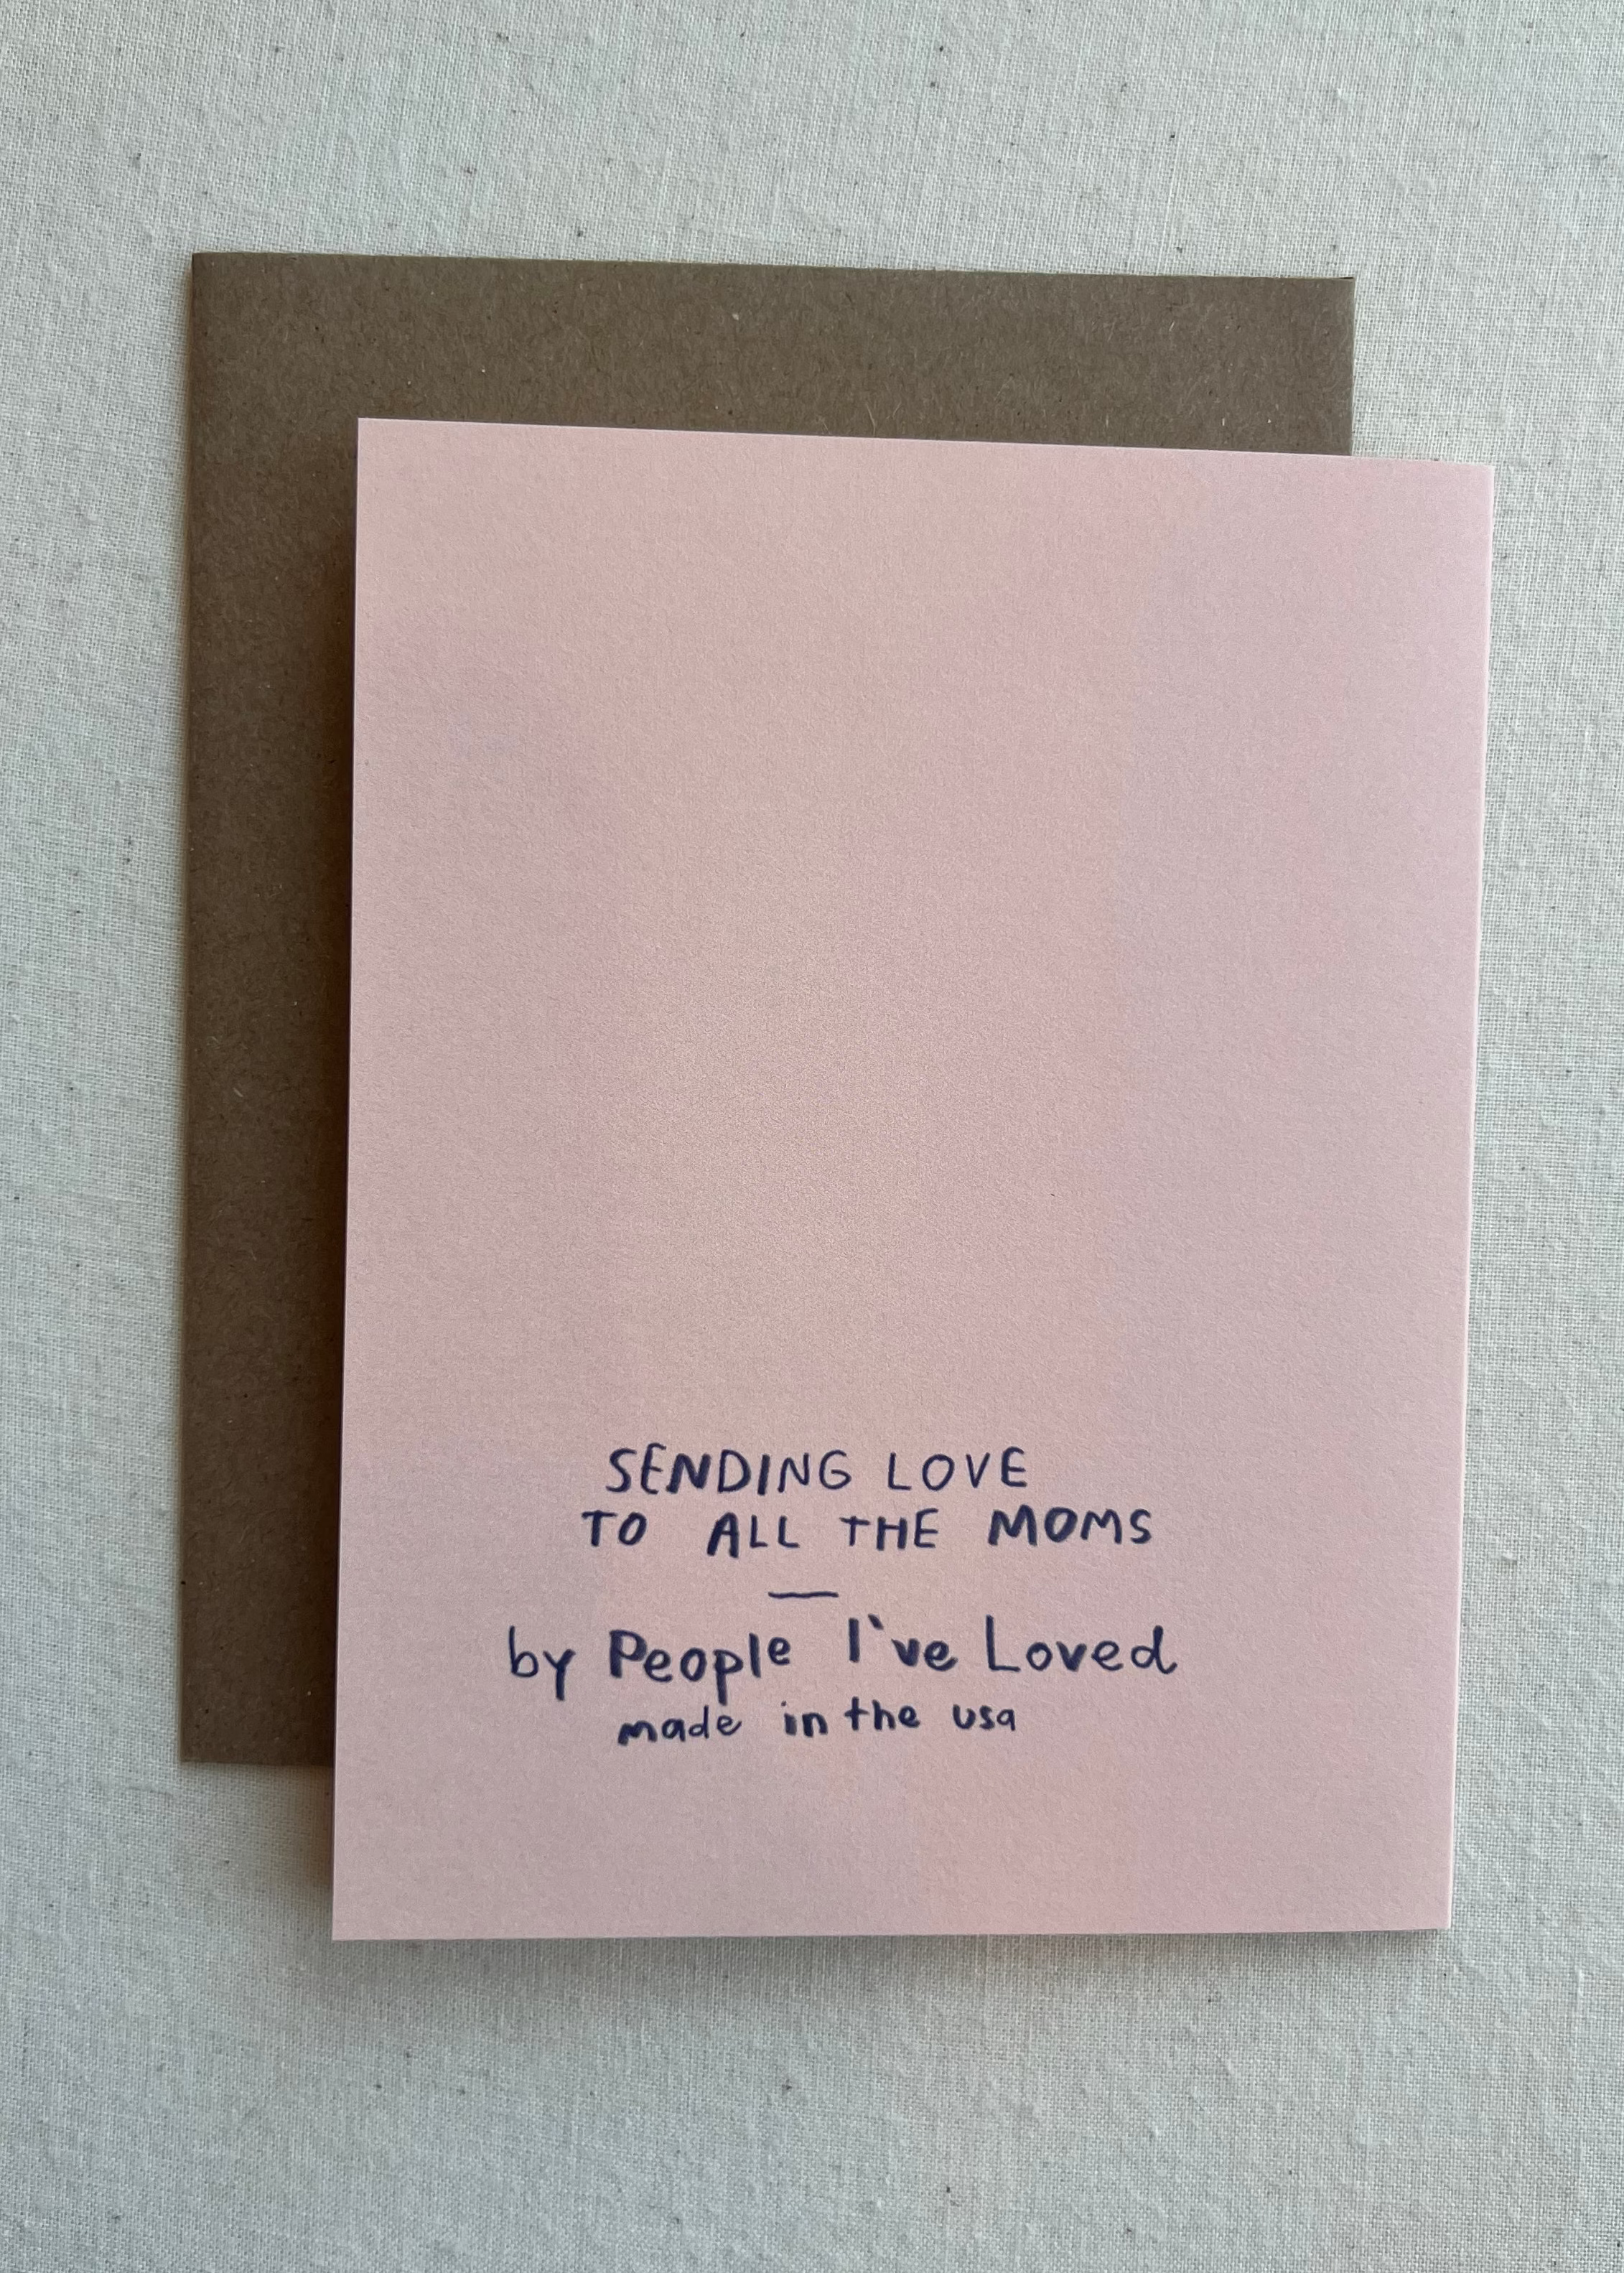 SENDING LOVE
TO ALL THE MOMS
—
by People I've Loved
made in the usa